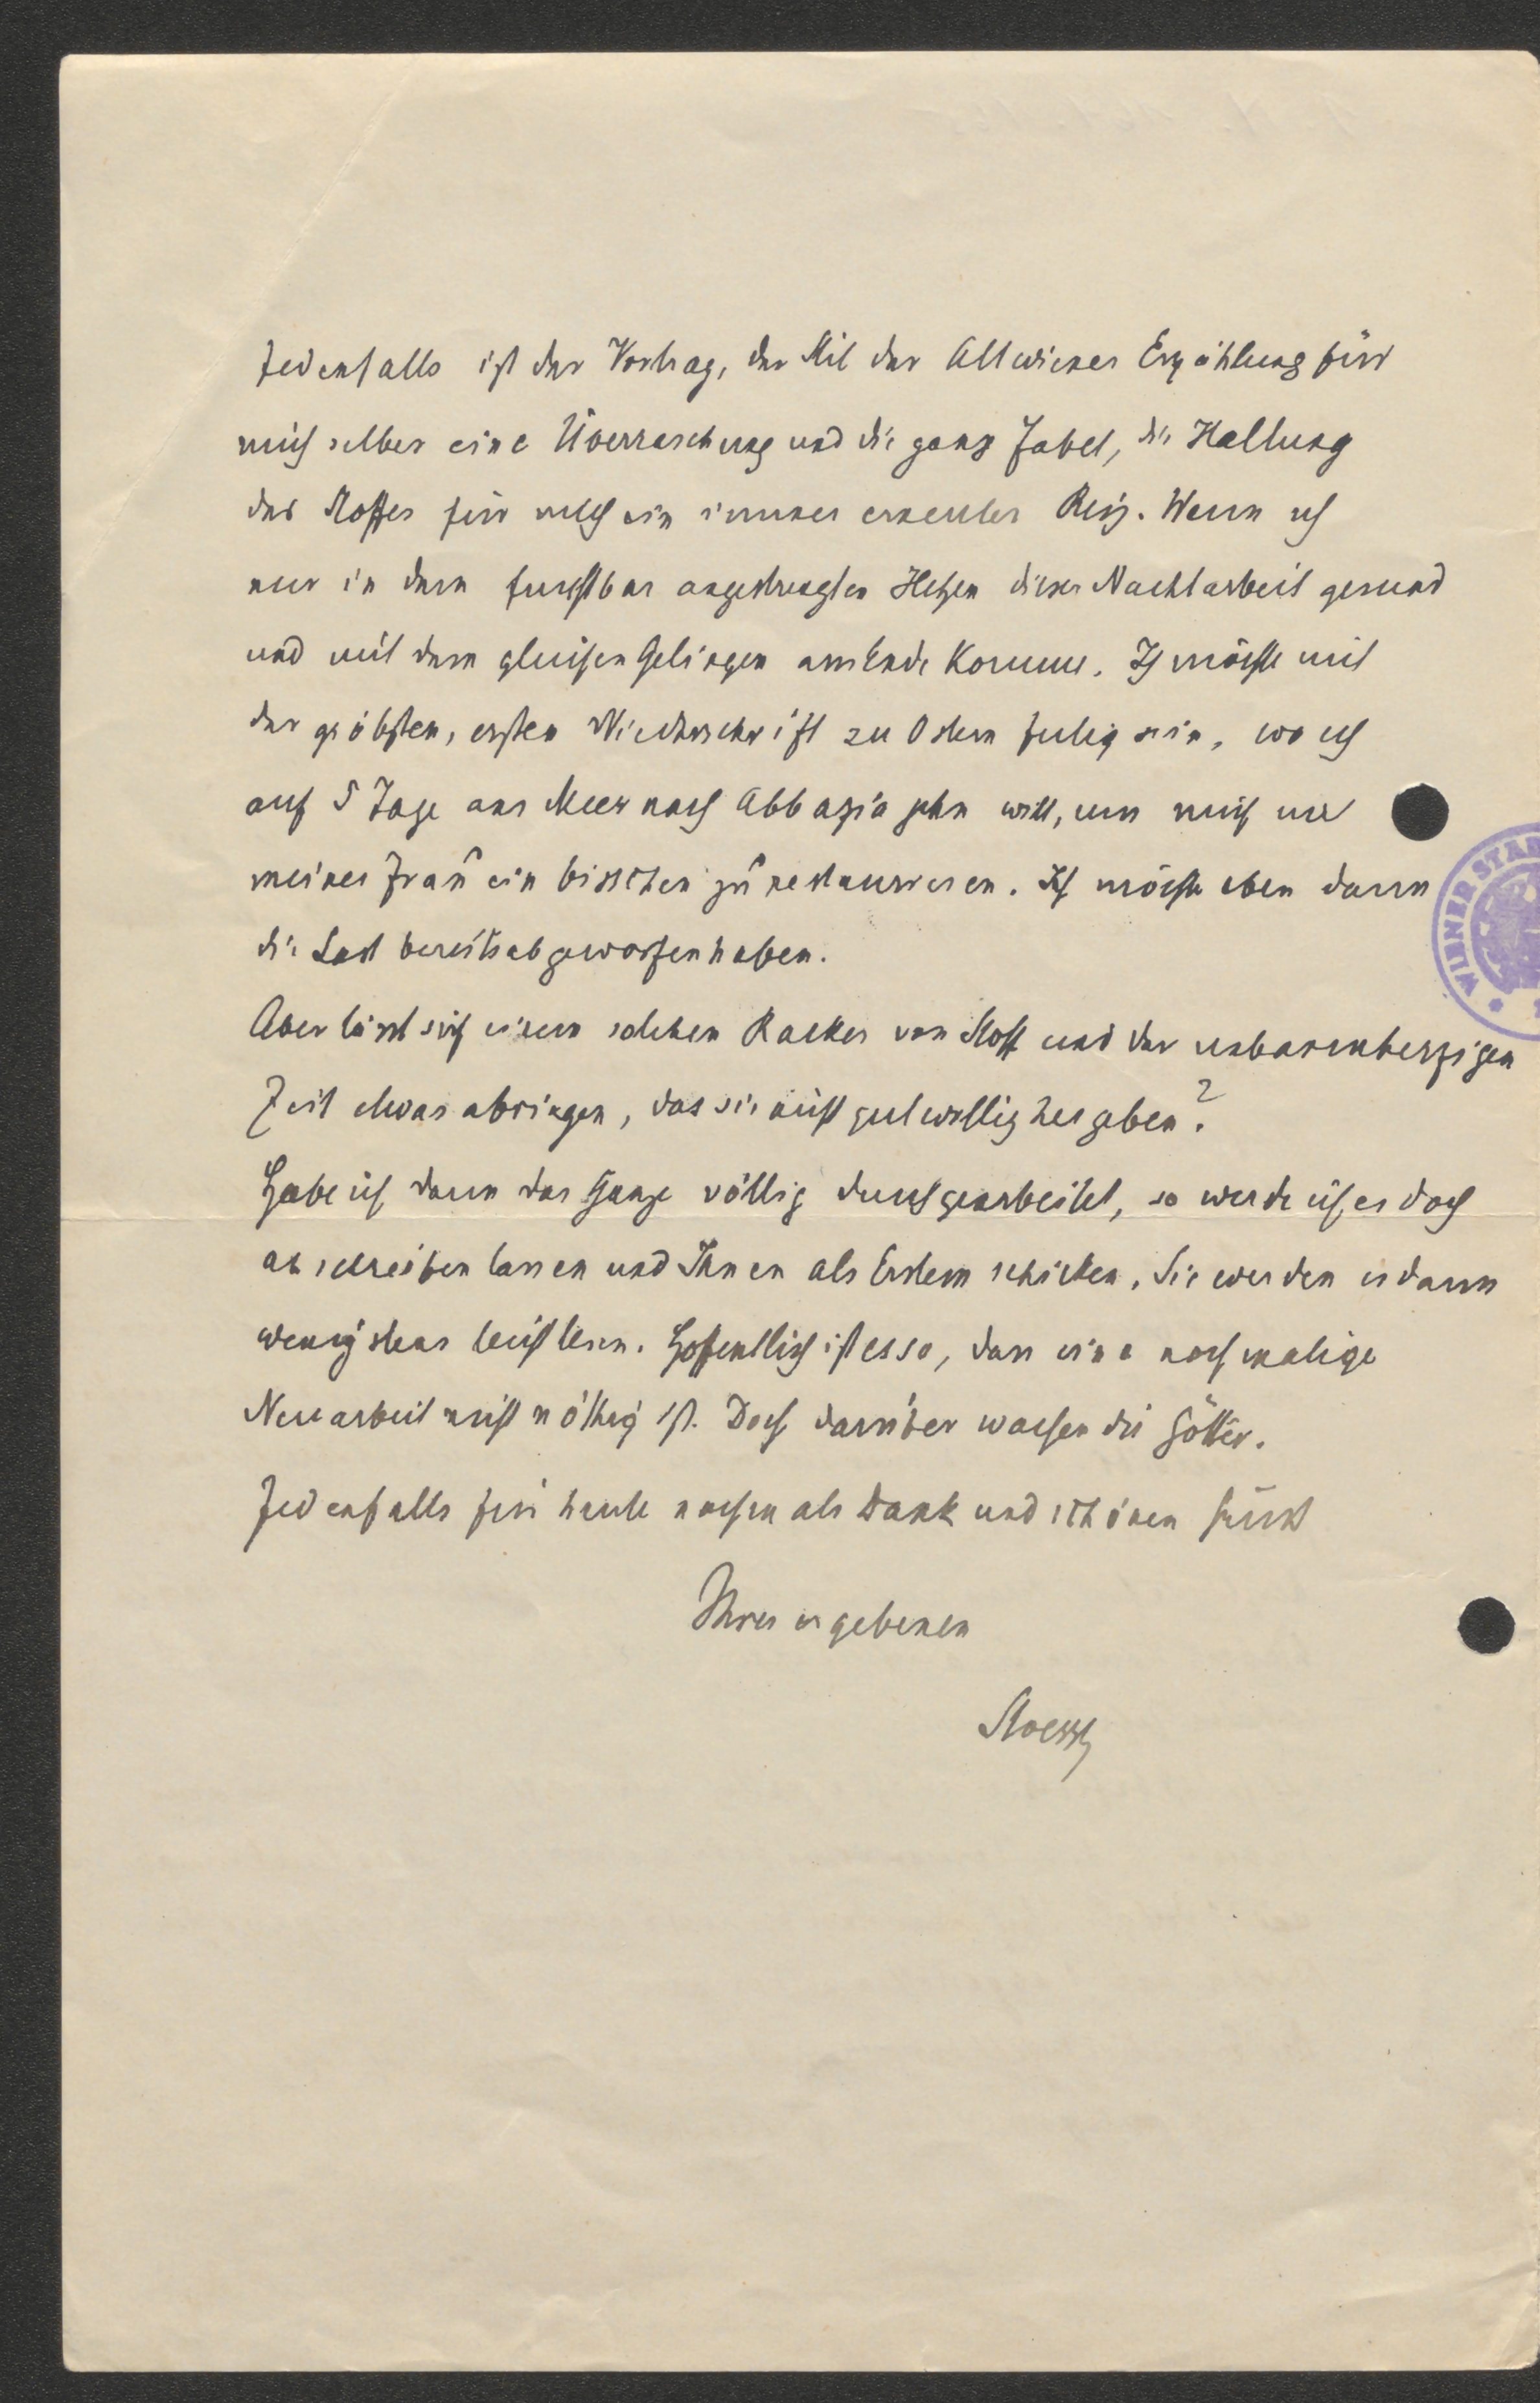 Jedenfalls ist der Vortrag, der Stil der Altwiener Erzählung für
mich selber eine Überraschung und die ganze Fabel, die Haltung
des Stoffes für mich ein immer erneuter Reiz. Wenn ich
nur in dem furchtbar angestrengten Hetzen dieser Nachtarbeit gesund
und mit dem gleichen Gelingen am Ende komme. Ich möchte mit
der gröbsten, ersten Niederschrift zu Ostern fertig sein, wo ich
auf 5 Tage ans Meer nach Abbazia gehn will, um mich und
meiner Frau ein bisschen zu restaurieren. Ich möchte eben dann
die Last bereits abgeworfen haben.
Aber lässt sich einem solchen Racker von Stoff und der unbarmherzigen
Zeit etwas abringen, das sie nicht gutwillig hergeben?
Habe ich dann das Ganze völlig durchgearbeitet, so werde ich es doch
abschreiben lassen und Ihnen als Erstem schicken. Sie werden es dann
wenigstens leicht lesen. Hoffentlich ist es so, dass eine nochmalige
Neuarbeit nicht nöthig ist. Doch darüber wachen die Götter.
Jedenfalls für heute nochmals Dank und schönen Gruß
Ihres ergebenen
Stoessl
WIENER STA